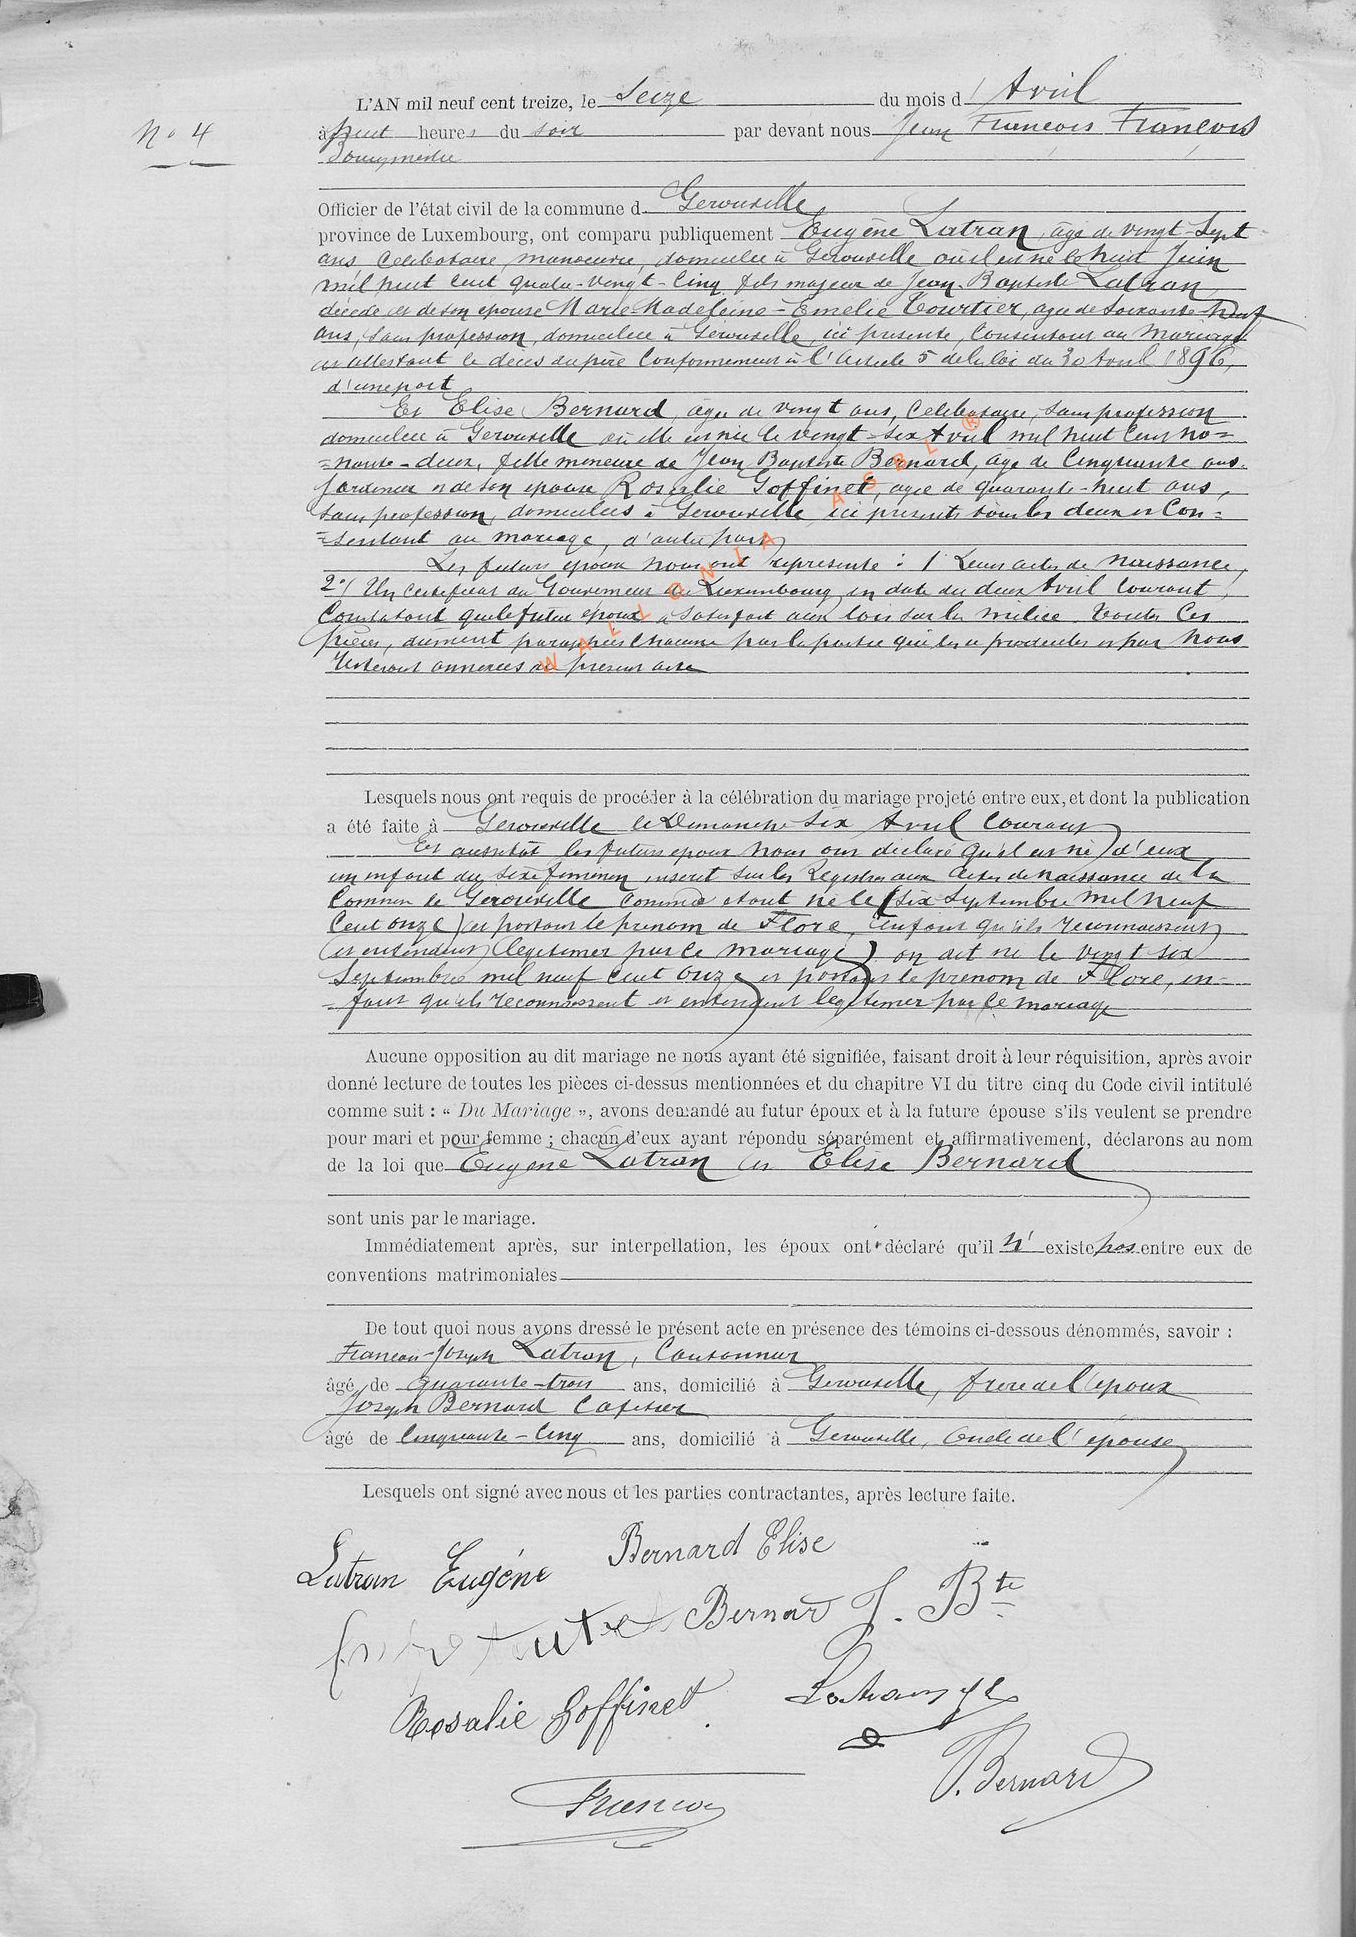 L'AN mil neuf cent treize, le Seize du mois d'Avril
N° 4
à huit heures du soir par devant nous Jean François François
Bourgmestre
Officier de l'état civil de la commune d Gerouville
province de Luxembourg, ont comparu publiquement Eugène Latran, âgé de vingt-sept
ans, celibataire manoeuvre, domicilié à Gerouville où il est né le huit Juin
mil huit cent quatre-vingt-cinq, fils majeur de Jean-Baptiste Latran,
décédé et de son epouse Marie-Madeleine-Emelie Tourtier, agée de soixante-neuf
ans, sans profession, domiciliée à Gerouville, ici presente, consentant au mariage
et attestant le décès du père conformement à l'article 5 de la loi du 30 Avril 1896,
d'une part
Et Elise Bernard, âgée de vingt ans, celibataire, sans profession
domiciliée à Gerouville où elle est née le vingt-six Avril mil huit cent no=
=nante-deux, fille mineure de Jean Baptiste Bernard, âgé de cinquante ans.
Jardinier et de son epouse Rosalie Goffinet, agée de quarante-huit ans,
sans profession, domiciliés à Gerouville, ici presents tous les deux et con=
=sentant au mariage, d'autre part
Les futurs époux nous ont représenté : 1 Leurs actes de naissance,
2°/ Un certificat du Gouverneur du Luxembourg en date du deux Avril courant,
constatant que le futur époux a satisfait aux lois sur la milice. Toutes ces
pièces, dument paraphées chacune par la partie qui les a produites et par nous
resteront annexées au present acte
WALLONIA ASBL ®
Lesquels nous ont requis de procéder à la célébration du mariage projeté entre eux, et dont la publication
a été faite à Gerouville le Dimanche six Avril courant
Et aussitôt les futurs epoux nous ont déclaré qu'il est né d'eux
un enfant du sexe feminin, inscrit sur les Registres aux actes de naissance de la
Commun de Gerouville comme etant né le (six Septembre mil neuf
cent onze) et portant le prenom de Flore, enfant qu'ils reconnaissent
(et entendent) legitimer par ce mariage) on dit né le vingt six
Septembre mil neuf cent onze et portant le prenom de Flore, en-
-fant qu'ils reconnaissent et entendent legitimer par ce mariage
Aucune opposition au dit mariage ne nous ayant été signifiée, faisant droit à leur réquisition, après avoir
donné lecture de toutes les pièces ci-dessus mentionnées et du chapitre VI du titre cinq du Code civil intitulé
comme suit : « Du Mariage », avons demandé au futur époux et à la future épouse s'ils veulent se prendre
pour mari et pour femme ; chacun d'eux ayant répondu séparément et affirmativement, déclarons au nom
de la loi que Eugène Latran et Elise Bernard
sont unis par le mariage.
Immédiatement après, sur interpellation, les époux ont déclaré qu'il n'existe pas entre eux de
conventions matrimoniales
De tout quoi nous avons dressé le présent acte en présence des témoins ci-dessous dénommés, savoir :
François-Joseph Latran, Cantonnier
âgé de quarante-trois ans, domicilié à Gerouville, frere de l'epoux
Joseph Bernard Cafetier
âgé de cinquante-cinq ans, domicilié à Gerouville, oncle de l'épouse
Lesquels ont signé avec nous et les parties contractantes, après lecture faite.
Latran Eugène Bernard Elise
Bernard J. Bte
Rosalie Goffinet Latran
J. Bernard
François